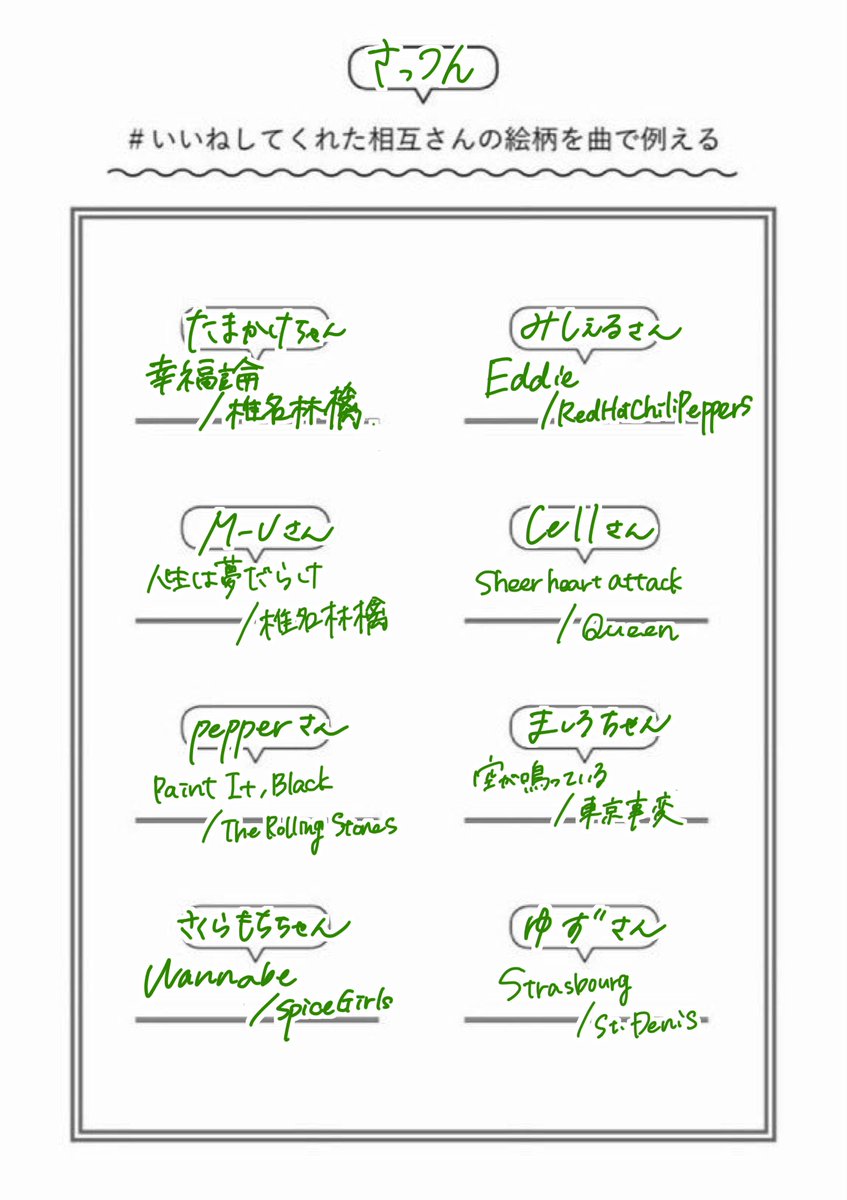 さっつん
#いいねしてくれた相互さんの絵柄を曲で例える
たまかけちゃん
幸福論
/椎名林檎
みしぇるさん
Eddie
/RedHotChiliPeppers
M-Uさん
人生は夢だらけ
/椎名林檎
Cellさん
Sheer heart attack
/Queen
pepperさん
Paint It, Black
/The Rolling Stones
ましろちゃん
空が鳴っている
/東京事変
さくらもちちゃん
Wannabe
/SpiceGirls
ゆずさん
Strasbourg
/St. Denis